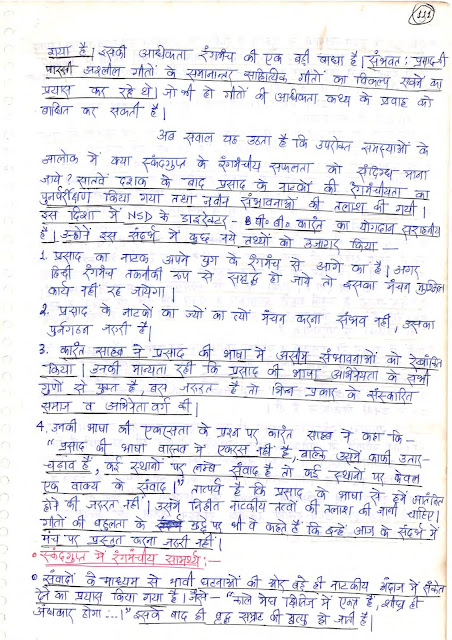 111
गया है। इसकी अधिकता रंगमंच की एक बड़ी बाधा है। संभवतः प्रसाद जी
पारसी अश्लील गीतों के समानान्तर साहित्यिक गीतों का विकल्प रखने का
प्रयास कर रहे थे। जो भी हो गीतों की अधिकता कथ्य के प्रवाह को
बाधित कर सकती है।
अब सवाल यह उठता है कि उपरोक्त समस्याओं के
आलोक में क्या स्कंदगुप्त के रंगमंचीय सफलता को संदिग्ध माना
जाये? सातवें दशक के बाद प्रसाद के नाटकों की रंगमंचीयता का
पुनर्परीक्षण किया गया तथा नवीन संभावनाओं की तलाश की गयी।
इस दिशा में NSD के डाइरेक्टर - B पी० वी० कारंत का योगदान सराहनीय
है। उन्होंने इस संदर्भ में कुछ नये तथ्यों को उजागर किया -
1. प्रसाद का नाटक अपने युग के रंगमंच से आगे का है। अगर
हिंदी रंगमंच तकनीकी रूप से समृद्ध हो जाये तो इसका मंचन मुश्किल
कार्य नहीं रह जायेगा।
2. प्रसाद के नाटकों का ज्यों का त्यों मंचन करना संभव नहीं, उसका
पुर्नगठन जरूरी है।
3. कारंत साहब ने प्रसाद की भाषा में असीम संभावनाओं को रेखांकित
किया। उनकी मान्यता रही कि प्रसाद की भाषा अभिनेयता के सभी
गुणों से युक्त है, बस जरूरत है तो भिन्न प्रकार के संस्कारित
समाज व अभिनेता वर्ग की।
4. उनकी भाषा की एकरसता के प्रश्न पर कारंत साहब ने कहा कि -
"प्रसाद की भाषा वास्तव में एकरस नहीं है, बल्कि उसमें काफी उतार-
चढ़ाव है, कई स्थानों पर लम्बे संवाद है तो कई स्थानों पर केवल
एक वाक्य के संवाद।" तात्पर्य है कि प्रसाद के भाषा से हमें आतंकित
होने की जरूरत नहीं। उसमें निहित नाटकीय तत्वों की तलाश की जानी चाहिए।
गीतों की बहुलता के मुद्दे पर भी वे कहते हैं कि इन्हें आज के संदर्भ में
मंच पर प्रस्तुत करना जरूरी नहीं।
• स्कंदगुप्त में रंगमंचीय सामर्थ्य:-
• संवादों के माध्यम से भावी घटनाओं की ओर बड़े ही नाटकीय अंदाज में संकेत
देने का प्रयास किया गया है। जैसे - "काले मेघ क्षितिज में एकत्र हैं, शीघ्र ही
अंधकार होगा ...।" इसके बाद ही वृद्ध सम्राट की मृत्यु हो जाती है।